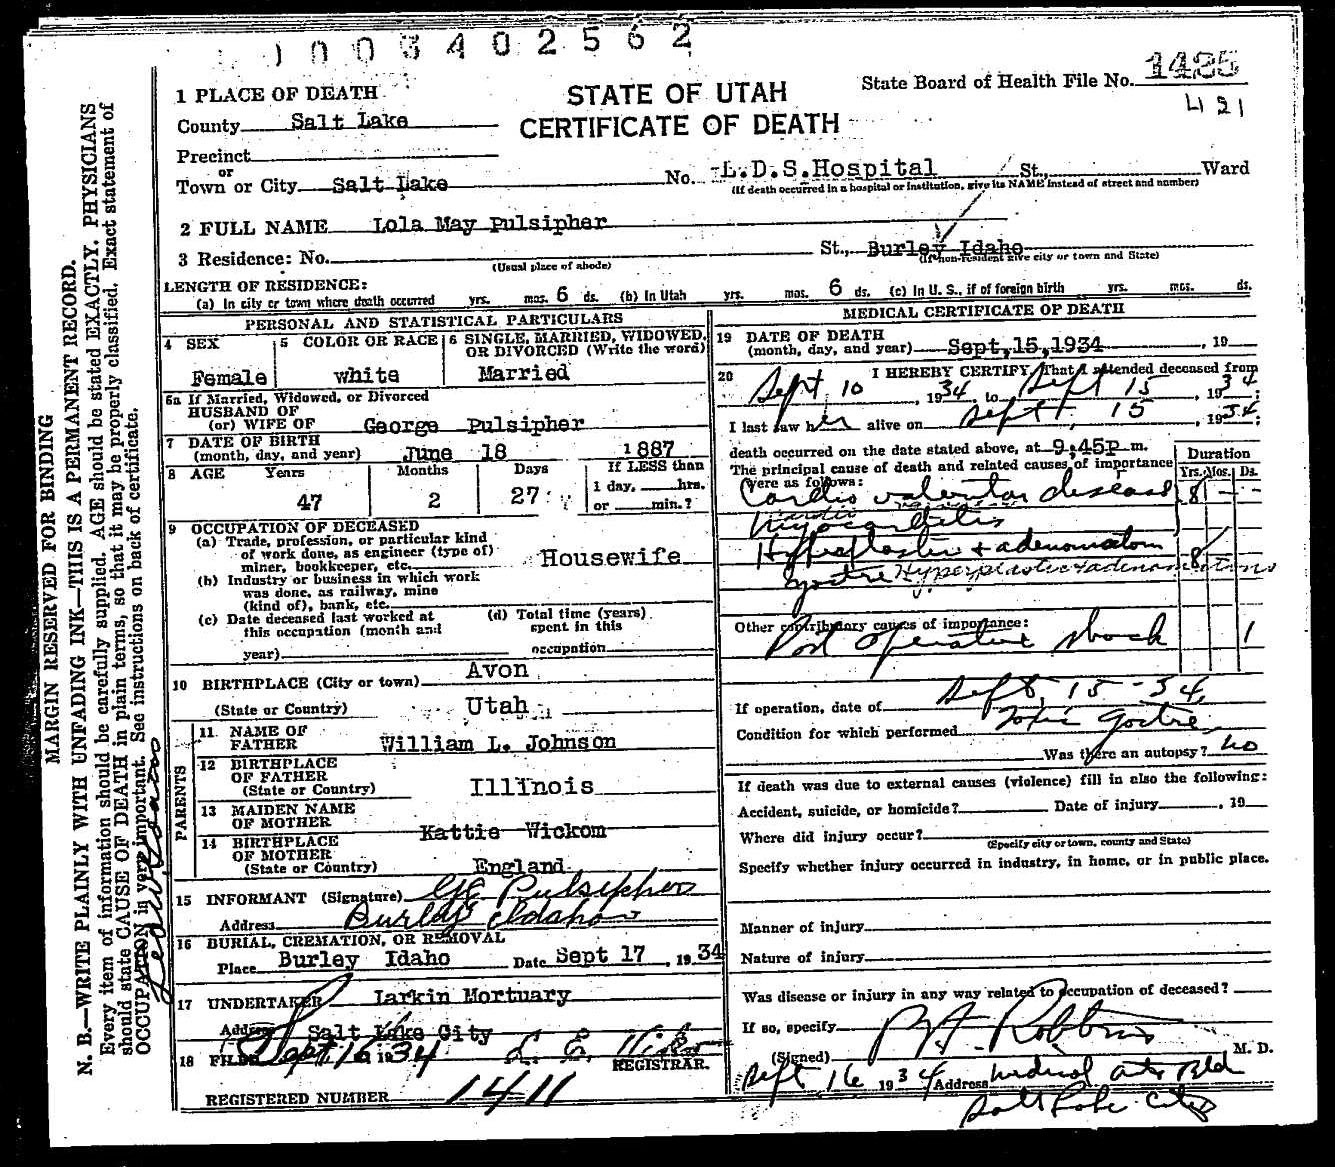 1003402562
1 PLACE OF DEATH
STATE OF UTAH
CERTIFICATE OF DEATH
State Board of Health File No. 1425
421
County Salt Lake
Precinct
or
Town or City Salt Lake No. L.D.S.Hospital St., Ward
(If death occurred in a hospital or institution, give its NAME instead of street and number)
2 FULL NAME Lola May Pulsipher
3 Residence: No. St., Burley Idaho
(Usual place of abode) (If non-resident give city or town and State)
LENGTH OF RESIDENCE:
(a) In city or town where death occurred yrs. mos. 6 ds. (b) In Utah yrs. mos. 6 ds. (c) In U. S., if of foreign birth yrs. mos. ds.
PERSONAL AND STATISTICAL PARTICULARS
4 SEX
Female
5 COLOR OR RACE
white
6 SINGLE, MARRIED, WIDOWED,
OR DIVORCED (Write the word)
Married
6a If Married, Widowed, or Divorced
HUSBAND OF
(or) WIFE OF George Pulsipher
7 DATE OF BIRTH
(month, day, and year) June 18 1887
8 AGE Years Months Days If LESS than
47 2 27 1 day, hrs.
or min.?
9 OCCUPATION OF DECEASED
(a) Trade, profession, or particular kind
of work done, as engineer (type of)
miner, bookkeeper, etc. Housewife
(b) Industry or business in which work
was done, as railway, mine
(kind of), bank, etc.
(c) Date deceased last worked at
this occupation (month and
year)
(d) Total time (years)
spent in this
occupation
10 BIRTHPLACE (City or town) Avon
(State or Country) Utah
PARENTS
11 NAME OF
FATHER William L. Johnson
12 BIRTHPLACE
OF FATHER
(State or Country) Illinois
13 MAIDEN NAME
OF MOTHER Kattie Wickom
14 BIRTHPLACE
OF MOTHER
(State or Country) England
15 INFORMANT (Signature) GE Pulsipher
Address Burley Idaho
16 BURIAL, CREMATION, OR REMOVAL
Place Burley Idaho Date Sept 17, 1934
17 UNDERTAKER Larkin Mortuary
Address Salt Lake City
18 FILED Sept 16 1934
REGISTRAR.
REGISTERED NUMBER 1411
MEDICAL CERTIFICATE OF DEATH
19 DATE OF DEATH
(month, day, and year) Sept,15,1934, 19
20 I HEREBY CERTIFY, That I attended deceased from
Sept 10, 1934 to Sept 15, 1934:
I last saw her alive on Sept. 15, 1934:
death occurred on the date stated above, at 9;45P m.
The principal cause of death and related causes of importance
were as follows:
Duration
Yrs. Mos. Ds.
Cardio valvular disease 8 - -
Myocarditis
Hyperplastic + adenomatous 8
goitre Hyperplastic + adenomatous
Other contributory causes of importance:
Post operative shock 1
If operation, date of Sept. 15-34,
Condition for which performed Toxic Goitre
Was there an autopsy? no
If death was due to external causes (violence) fill in also the following:
Accident, suicide, or homicide? Date of injury , 19
Where did injury occur?
(Specify city or town, county and State)
Specify whether injury occurred in industry, in home, or in public place.
Manner of injury
Nature of injury
Was disease or injury in any way related to occupation of deceased?
If so, specify
(Signed) Robbins M. D.
Sept 16 1934 Address Medical Arts Bld
Salt Lake City
MARGIN RESERVED FOR BINDING
N. B.—WRITE PLAINLY WITH UNFADING INK—THIS IS A PERMANENT RECORD.
Every item of information should be carefully supplied. AGE should be stated EXACTLY. PHYSICIANS
should state CAUSE OF DEATH in plain terms, so that it may be properly classified. Exact statement of
OCCUPATION is very important. See instructions on back of certificate.